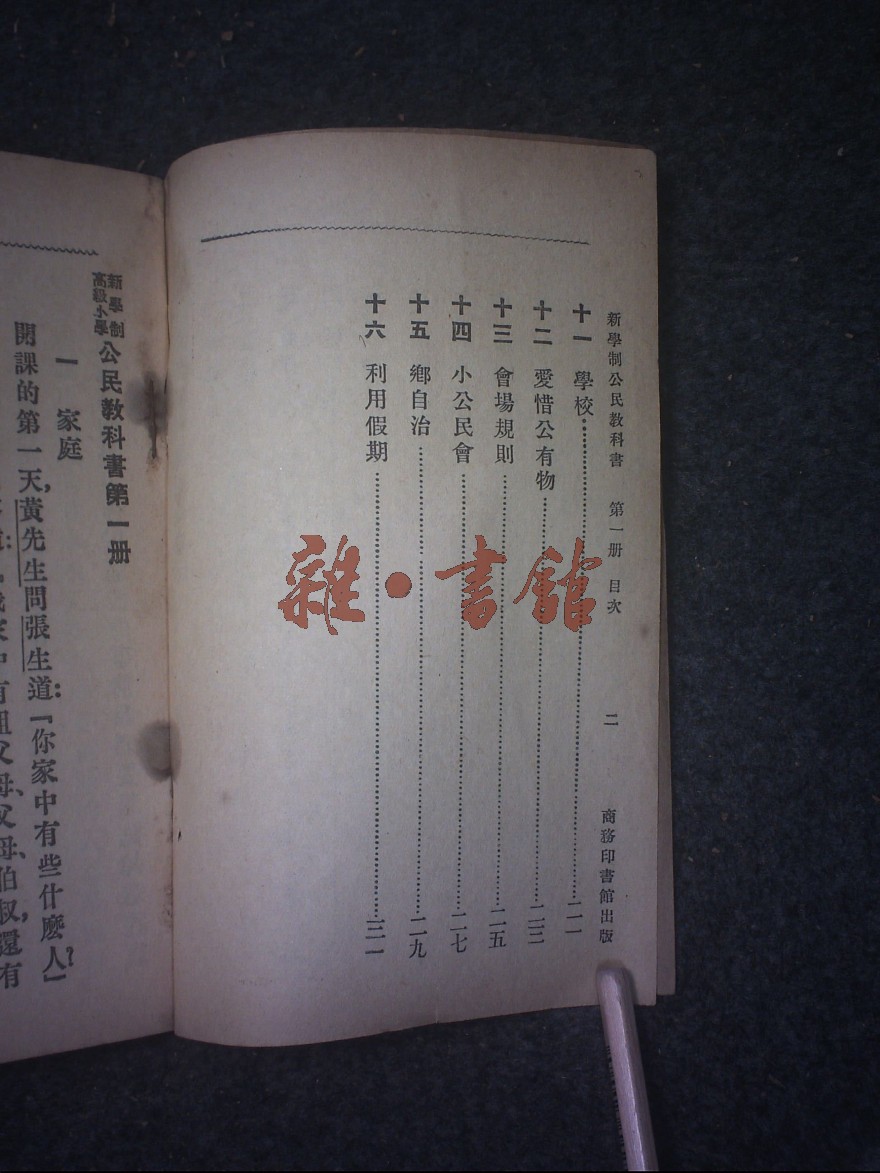 新學制公民教科書 第一册 目次 二 商務印書館出版
十一 學校 二一
十二 愛惜公有物 二三
十三 會場規則 二五
十四 小公民會 二七
十五 鄉自治 二九
十六 利用假期 三一
雜·書館
新學制
高級小學
公民教科書第一册
一 家庭
開課的第一天，黃先生問張生道：『你家中有些什麽人？』
家中有祖父母、父母、伯叔，還有